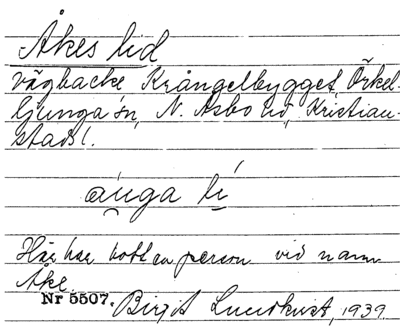 Åkes lid
vägbacke Krångelbygget, Örkel-
ljunga sn, N. Åsbo hd, Kristian-
stads l.
åuga lí
Här har bott en person vid namn
Åke.
Nr 5507. Birgit Lundkvist, 1939.